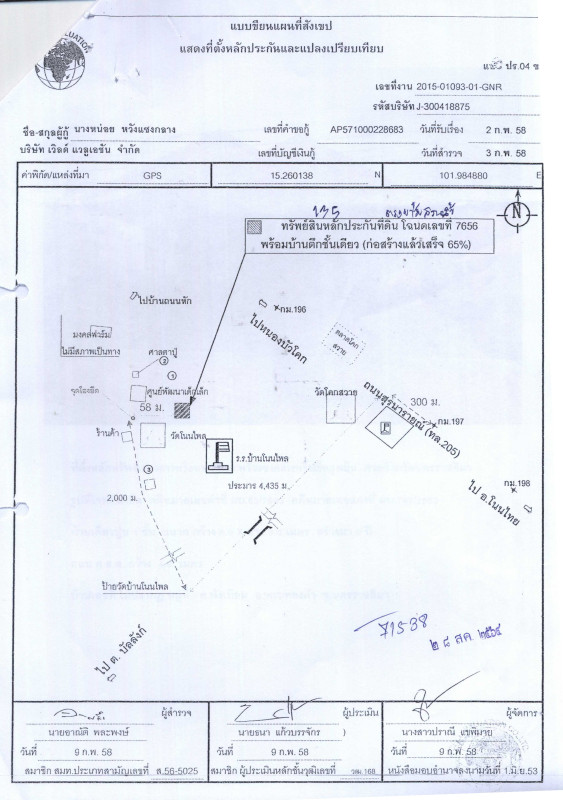 VALUATION
แบบเขียนแผนที่สังเขป
แสดงที่ตั้งหลักประกันและแปลงเปรียบเทียบ
ปร.04 ข
เลขที่งาน 2015-01093-01-GNR
รหัสบริษัท J-300418875
ชื่อ-สกุลผู้กู้ นางหน่อย หวังแซงกลาง เลขที่คำขอกู้ AP571000228683 วันที่รับเรื่อง 2 ก.พ. 58
บริษัท เวิลด์ แวลูเอชั่น จำกัด เลขที่บัญชีเงินกู้ วันที่สำรวจ 3 ก.พ. 58
ค่าพิกัด/แหล่งที่มา GPS 15.260138 N 101.984880 E
135
N
ทรัพย์สินหลักประกันที่ดิน โฉนดเลขที่ 7656
พร้อมบ้านตึกชั้นเดียว (ก่อสร้างแล้วเสร็จ 65%)
ไปบ้านถนนหัก
กม.196
ไปหนองบัวโคก
มงคลฟาร์ม
ไม่มีสภาพเป็นทาง
ตลาดโคกสวาย
ศาลตาปู่
2
1
ศูนย์พัฒนาเด็กเล็ก
58 ม.
วัดโคกสวาย
ถนนสุรนารายณ์ (ทล.205)
300 ม.
กม.197
ร้านค้า
วัดโนนไพล
ร.ร.บ้านโนนไพล
3
ประมาร 4,435 ม.
2,000 ม.
กม.198
ไป อ.โนนไทย
ป้ายวัดบ้านโนนไพล
ไป ต. บัลลังก์
71538
๒๘ สค. ๒๕๖๕
ผู้สำรวจ ผู้ประเมิน ผู้จัดการ
นายอาณัติ พละพงษ์ นายธนา แก้วบรรจักร ) นางสาวปราณี แซพิมาย
วันที่ 9 ก.พ. 58 วันที่ 9 ก.พ. 58 วันที่ 9 ก.พ. 58
สมาชิก สมท.ประเภทสามัญเลขที่ ส.56-5025 สมาชิก ผู้ประเมินหลักชั้นวุฒิเลขที่ วฒ.168 หนังสือมอบอำนาจลงนามวันที่ 1 มิ.ย.53